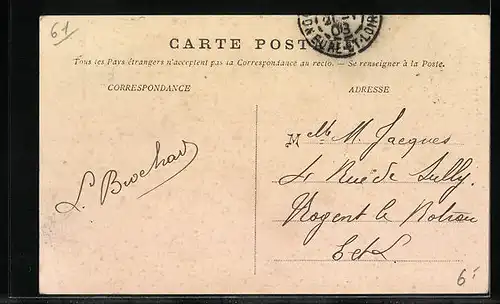 61
CARTE POST
Tous les Pays étrangers n'acceptent pas la Correspondance au recto. — Se renseigner à la Poste.
CORRESPONDANCE
ADRESSE
Melle M. Jacques
4 Rue de Sully.
Nogent le Rotrou
E et L.
L. Brochard
EURE-ET-LOIR
6